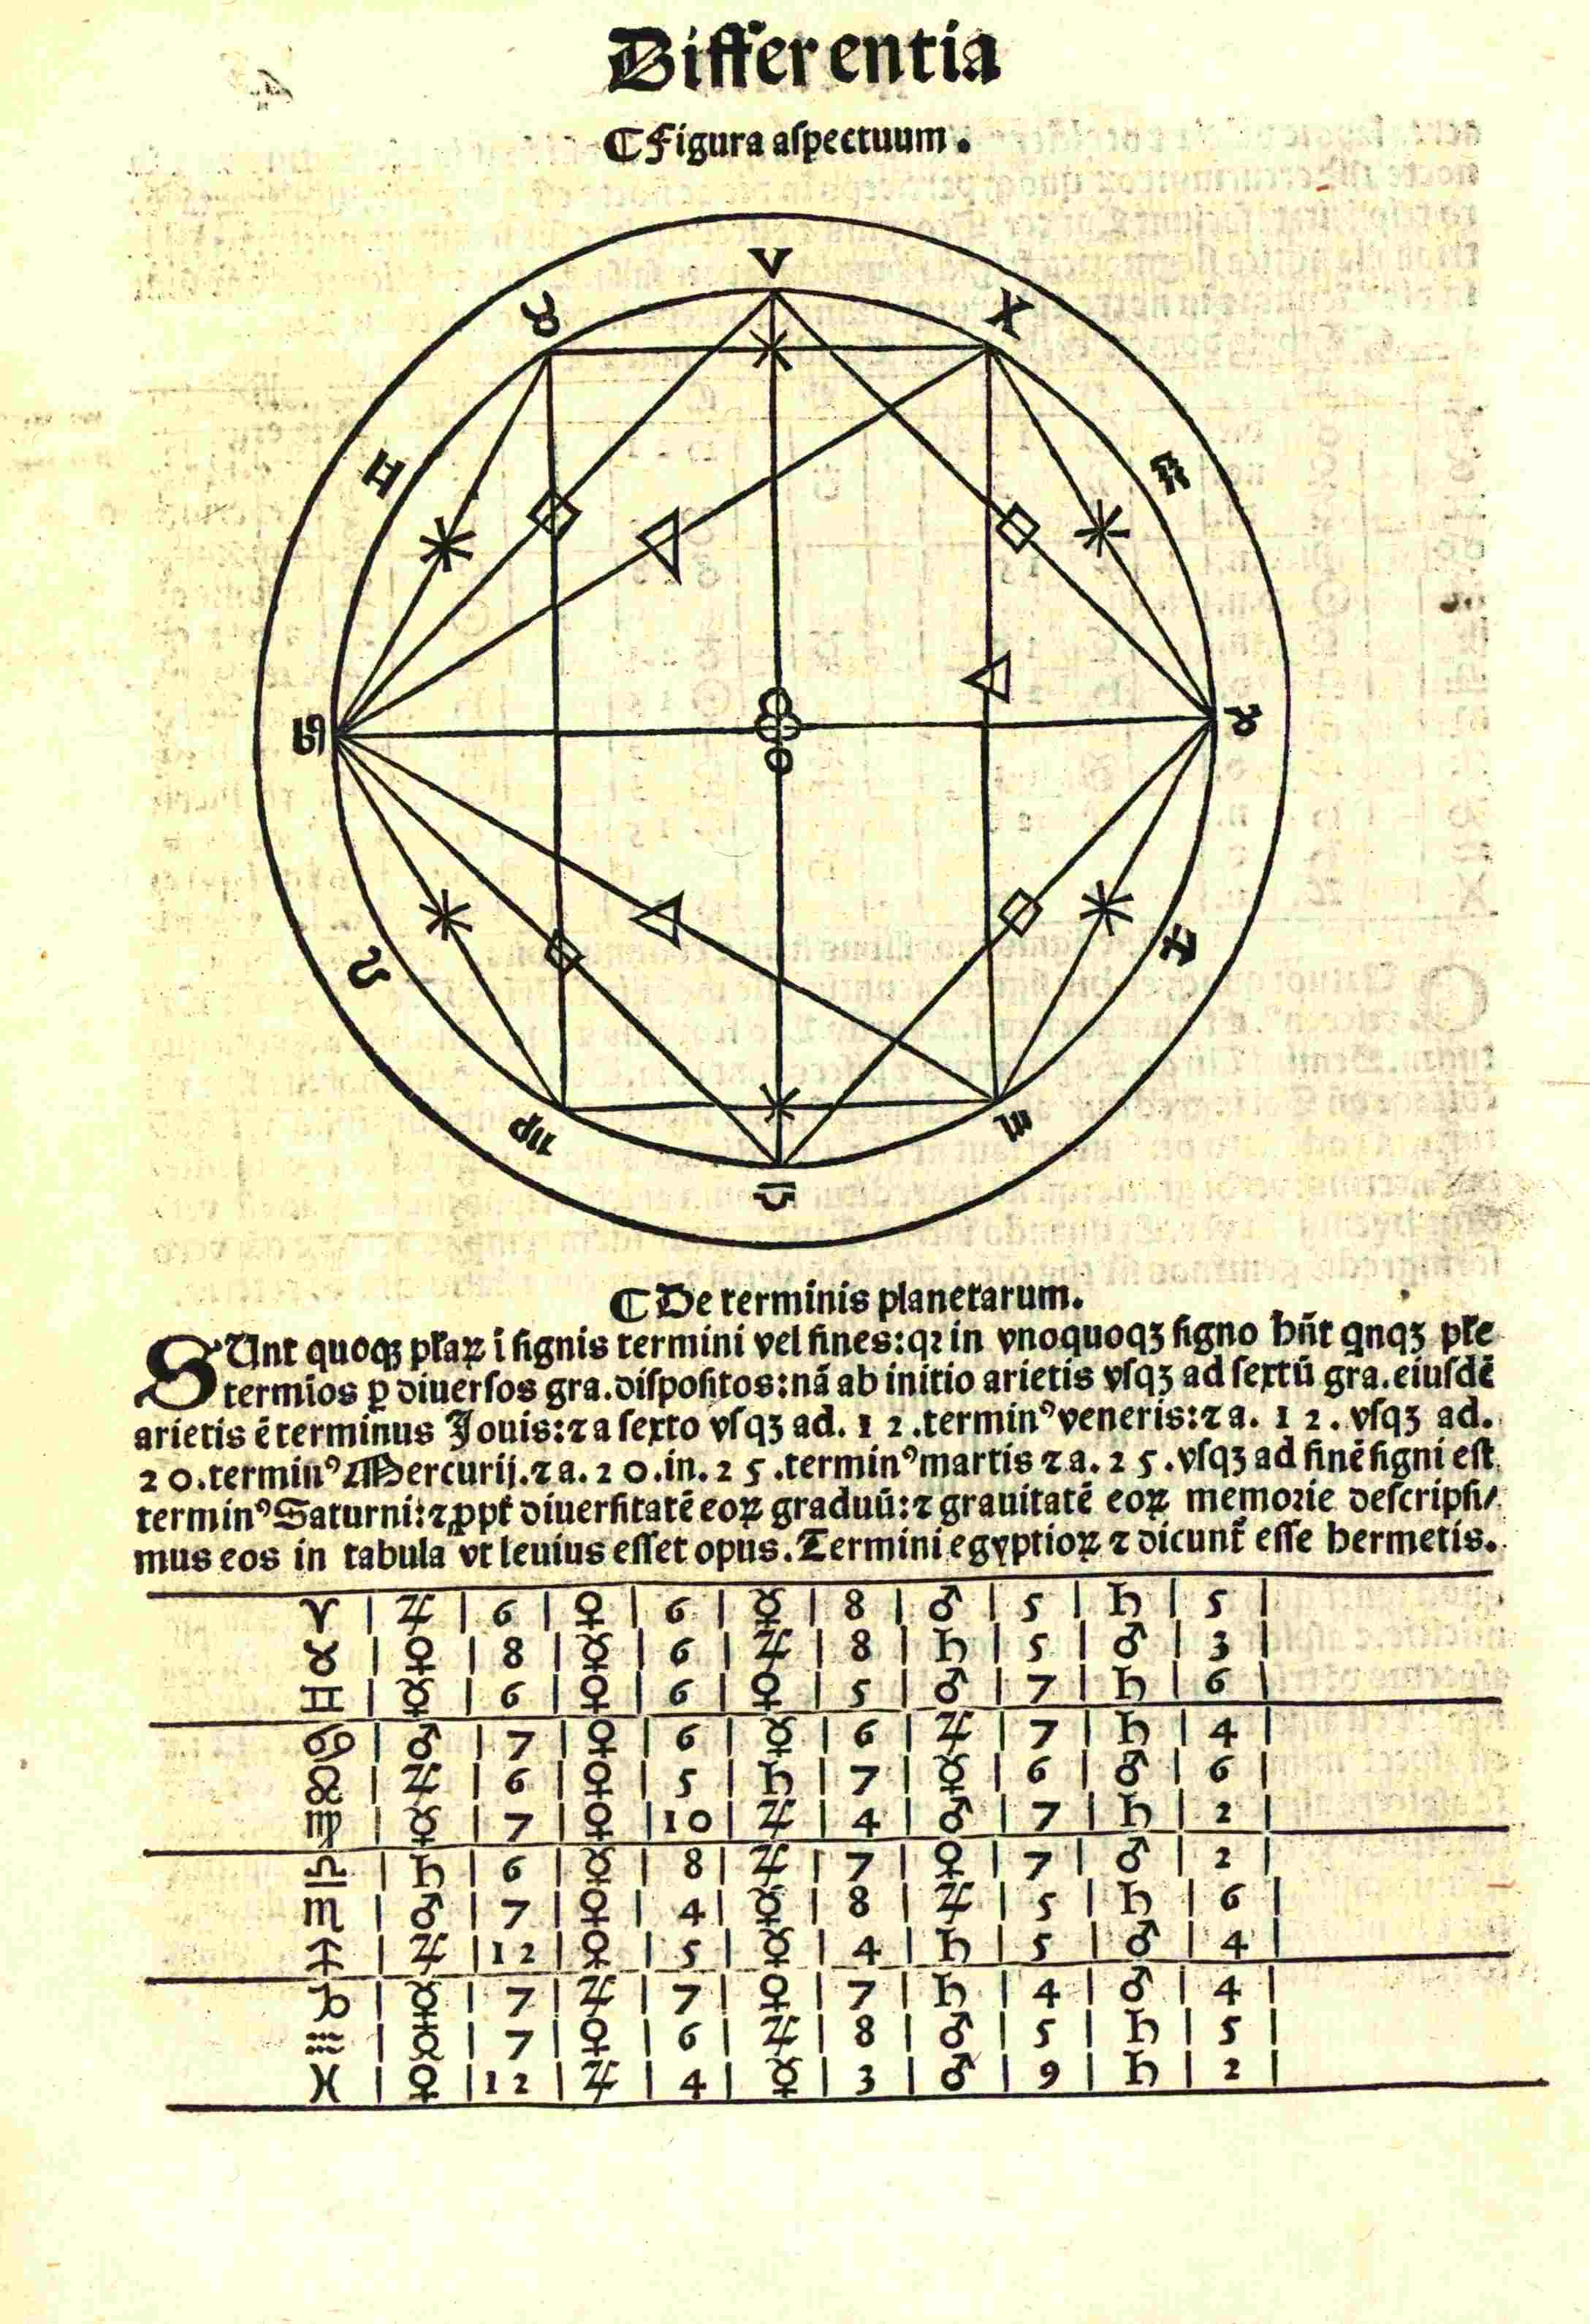 Differentia
¶ Figura aſpectuum.
♈
♉ ♓
♊ ♒
♋ ♑
♌ ♐
♍ ♏
♎
¶ De terminis planetarum.
SUnt quoqꝫ płaꝝ ī ſignis termini vel fines: qꝛ in vnoquoqꝫ ſigno hn̄t qnqꝫ płe
termīos ꝑ diuerſos gra. diſpoſitos: nā ab initio arietis vſqꝫ ad ſextū gra. eiuſdē
arietis ē terminus Jouis: ⁊ a ſexto vſqꝫ ad. 12. terminꝰ veneris: ⁊ a. 12. vſqꝫ ad.
20. terminꝰ Mercurij. ⁊ a. 20. in. 25. terminꝰ martis ⁊ a. 25. vſqꝫ ad finē ſigni eſt
terminꝰ Saturni: ⁊ ꝓpt̄ diuerſitatē eoꝝ graduū: ⁊ grauitatē eoꝝ memoꝛie deſcripſi⸗
mus eos in tabula vt leuius eſſet opus. Termini egyptioꝝ ⁊ dicunt̄ eſſe hermetis.
♈ | ♃ | 6 | ♀ | 6 | ☿ | 8 | ♂ | 5 | ♄ | 5 |
♉ | ♀ | 8 | ☿ | 6 | ♃ | 8 | ♄ | 5 | ♂ | 3 |
♊ | ☿ | 6 | ♀ | 6 | ♀ | 5 | ♂ | 7 | ♄ | 6 |
♋ | ♂ | 7 | ♀ | 6 | ☿ | 6 | ♃ | 7 | ♄ | 4 |
♌ | ♃ | 6 | ♀ | 5 | ♄ | 7 | ☿ | 6 | ♂ | 6 |
♍ | ☿ | 7 | ♀ | 10 | ♃ | 4 | ♂ | 7 | ♄ | 2 |
♎ | ♄ | 6 | ☿ | 8 | ♃ | 7 | ♀ | 7 | ♂ | 2 |
♏ | ♂ | 7 | ♀ | 4 | ☿ | 8 | ♃ | 5 | ♄ | 6 |
♐ | ♃ | 12 | ♀ | 5 | ☿ | 4 | ♄ | 5 | ♂ | 4 |
♑ | ☿ | 7 | ♃ | 7 | ♀ | 7 | ♄ | 4 | ♂ | 4 |
♒ | ☿ | 7 | ♀ | 6 | ♃ | 8 | ♂ | 5 | ♄ | 5 |
♓ | ♀ | 12 | ♃ | 4 | ☿ | 3 | ♂ | 9 | ♄ | 2 |